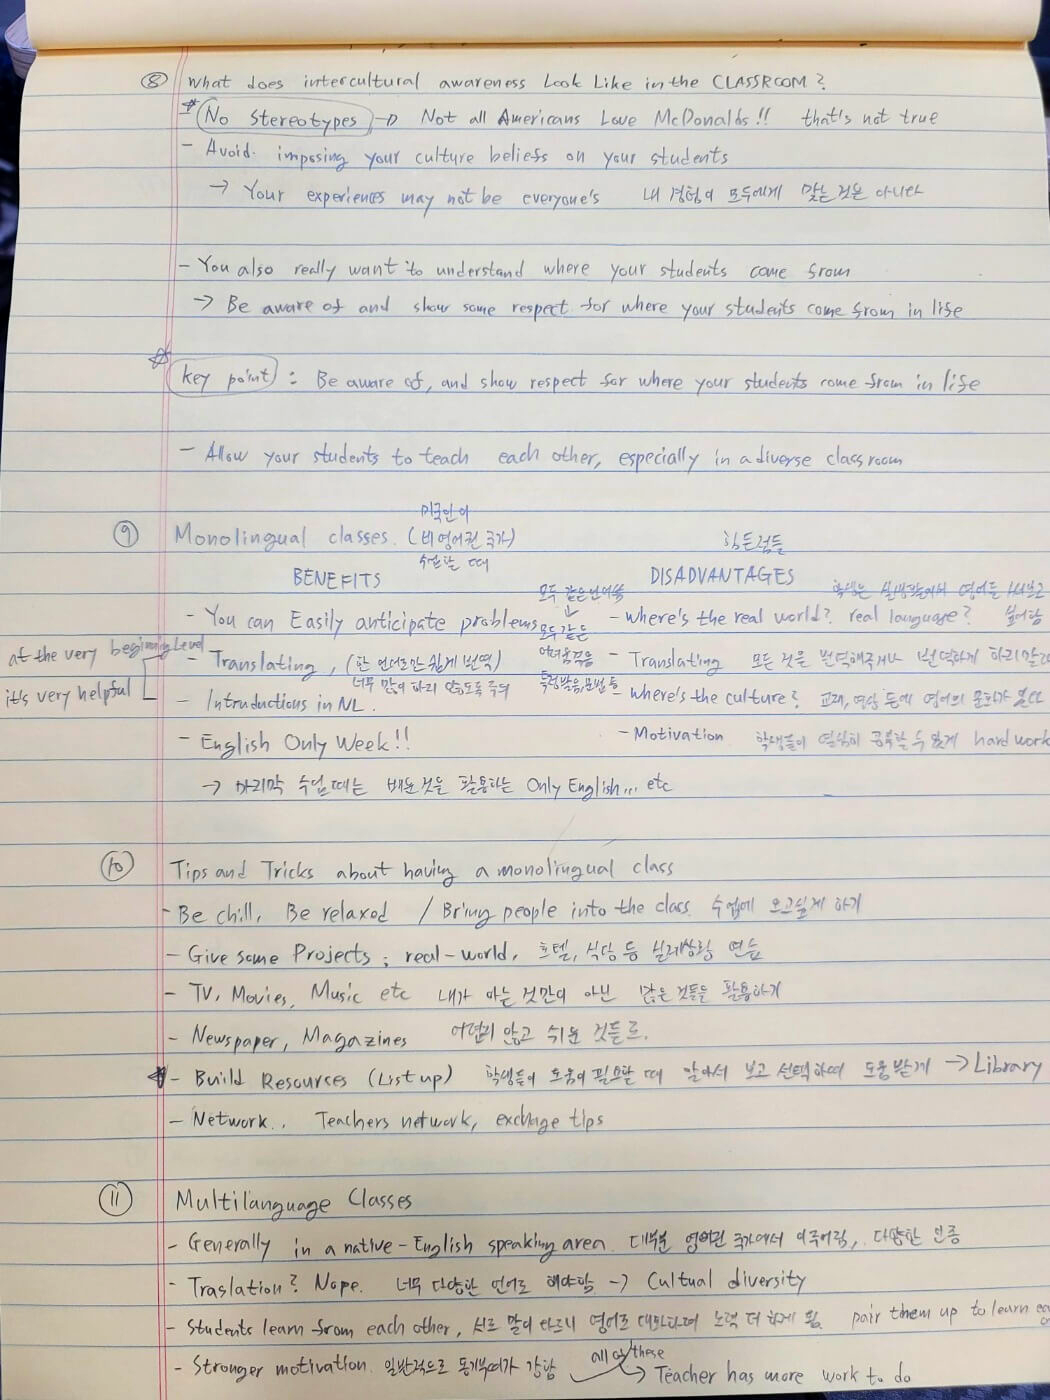 ⑧ What does intercultural awareness Look Like in the CLASSROOM?
* No Stereotypes → Not all Americans Love McDonalds!! that's not true
- Avoid. imposing your culture beliefs on your students
→ Your experiences may not be everyone's 내 경험이 모두에게 맞는 것은 아니다
- You also really want to understand where your students come from
→ Be aware of and show some respect for where your students come from in life
☆ key point : Be aware of, and show respect for where your students come from in life
- Allow your students to teach each other, especially in a diverse classroom
미국인이
⑨ Monolingual classes. (비영어권 국가)
수업할 때
힘든점들
BENEFITS
DISADVANTAGES
모두 같은 언어
- You can Easily anticipate problems
모두 같은
어려움 겪음
특정발음, 문법 등
at the very beginning Level
it's very helpful
- Translating, (한 언어로만 쉽게 번역)
너무 많이 하지 않도록 주의
- Intruductions in NL.
- English Only Week!!
→ 마지막 수업 때는 배운 것을 활용하는 Only English... etc
학생은 실생활에서 영어를
- where's the real world? real language?
- Translating 모든 것을 번역해주거나 번역하게 하지말라
- where's the culture? 교재, 영상 등에 영어의 문화가
- Motivation 학생들이 열심히 공부할 수 있게 hard work
⑩ Tips and Tricks about having a monolingual class
- Be chill, Be relaxed / Bring people into the class. 수업에 오고싶게 하기
- Give some Projects; real-world, 호텔, 식당 등 실제상황 연습
- TV, Movies, Music etc 내가 아는 것만이 아닌 많은 것들을 활용하기
- Newspaper, Magazines 어렵지 않고 쉬운 것들로.
★ - Build Resources (List up) 학생들이 도움이 필요할 때 알아서 보고 선택하여 도움받게 → Library
- Network.. Teachers network, exchage tips
⑪ Multilanguage Classes
- Generally in a native-English speaking area. 대부분 영어권 국가에서 이루어짐, 다양한 인종
- Traslation? Nope. 너무 다양한 언어로 해야함 → Cultual diversity
- Students learn from each other, 서로 말이 다르니 영어로 대화하며 노력 더 하게 됨. pair them up to learn
- Stronger motivation. 일반적으로 동기부여가 강함
all of these
→ Teacher has more work to do